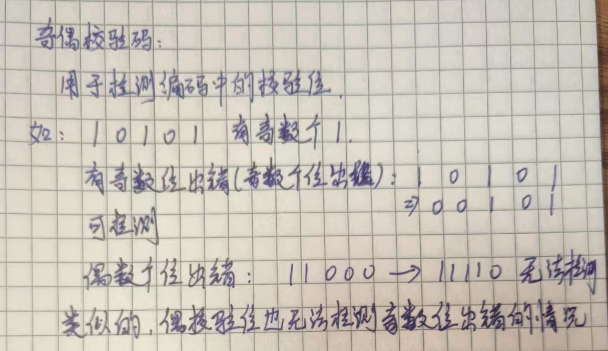 奇偶校验码:
用于检测编码中的校验位.
如: 1 0 1 0 1 有奇数个1.
有奇数位出错(奇数个位出错): 1 0 1 0 1
⇒ 0 0 1 0 1
可检测
偶数个位出错: 11000 → 11110 无法检测
类似的, 偶校验位也无法检测奇数位出错的情况